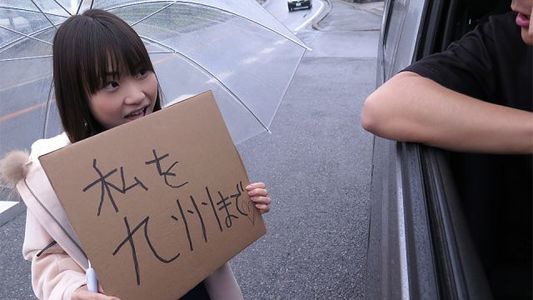 私を
九州まで♡